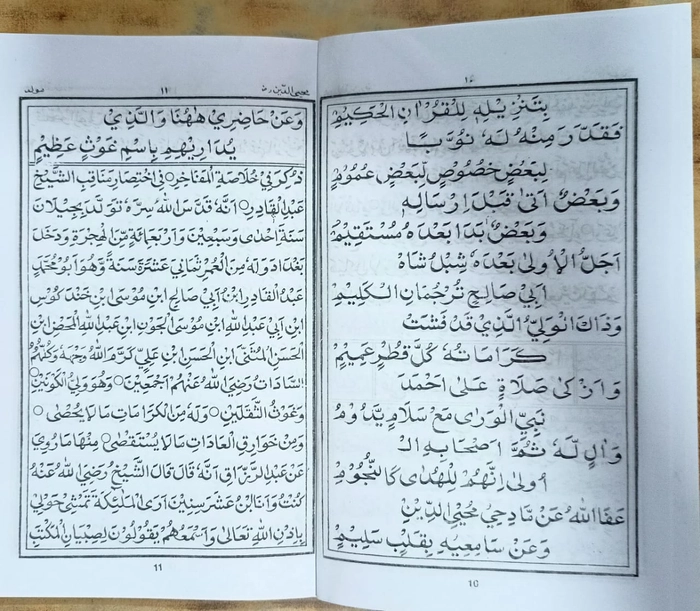 ١٠
بِتَنْزِيْلِهِ لِلْقُرْاٰنِ الْحَكِيْمِ
فَقَدَّرَ مِنْهُ لَهٗ نُوَّبًا
لِبَعْضٍ خُصُوْصٍ لِبَعْضٍ عُمُوْمٍ
وَبَعْضٌ اَتٰى قَبْلَ اِرْسَالِهِ
وَبَعْضٌ بَدَا بَعْدَهٗ مُسْتَقِيْمٌ
اَجَلُّ الْاُولٰى بَعْدَهٗ شِبْلُ شَاهْ
اَبِيْ صَالِحٍ تُرْجُمَانِ الْكَلِيْمِ
وَذَاكَ الْوَلِيُّ الَّذِيْ قَدْ فَشَتْ
كَرَامَاتُهٗ كُلَّ قُطْرٍ عَمِيْمٍ
وَاَزْكٰى صَلَاةٍ عَلٰى اَحْمَدَ
نَبِيِّ الْوَرٰى مَعْ سَلَامٍ يَّدُوْمُ
وَاٰلٍ لَهٗ ثُمَّ اَصْحَابِهِ الْـ
اُولٰى اِنَّهُمْ لِلْهُدٰى كَالنُّجُوْمِ
عَفَا اللهُ عَنْ مَّادِحِيْ مُحْيِى الدِّيْنِ
وَعَنْ سَامِعِيْهِ بِقَلْبٍ سَلِيْمٍ
10
محيي الدين رض
١١
مولد
وَعَنْ حَاضِرِيْ هٰهُنَا وَالَّذِيْ
يُدَارِيْهِمِ بِاسْمِ غَوْثٍ عَظِيْمٍ
ذُكِرَ فِيْ خُلَاصَةِ الْمَفَاخِرِ فِي اخْتِصَارِ مَنَاقِبِ الشَّيْخِ
عَبْدِ الْقَادِرِ اَنَّهٗ قَدَّسَ اللهُ سِرَّهٗ تَوَلَّدَ بِجِيْلَانَ
سَنَةَ اِحْدٰى وَسَبْعِيْنَ وَاَرْبَعِمِائَةٍ مِّنَ الْهِجْرَةِ وَدَخَلَ
بَغْدَادَ وَلَهٗ مِنَ الْعُمْرِ ثَمَانِيْ عَشْرَةَ سَنَةً وَهُوَ اَبُوْ مُحَمَّدٍ
عَبْدُ الْقَادِرِ ابْنُ اَبِيْ صَالِحٍ ابْنِ مُوْسَى بْنِ جَنْدَكُوْسَ
ابْنِ اَبِيْ عَبْدِ اللهِ ابْنِ مُوْسَى الْجَوْنِ ابْنِ عَبْدِ اللهِ الْمَحْضِ ابْنِ
الْحَسَنِ الْمُثَنّٰى ابْنِ الْحَسَنِ ابْنِ عَلِيٍّ كَرَّمَ اللهُ وَجْهَهٗ وَكُلُّهُمُ
السَّادَاتُ رَضِيَ اللهُ عَنْهُمْ اَجْمَعِيْنَ وَهُوَ وَلِيُّ الْكَوْنَيْنِ
وَغَوْثُ الثَّقَلَيْنِ وَلَهٗ مِنَ الْكَرَامَاتِ مَا لَا يُحْصٰى
وَمِنْ خَوَارِقِ الْعَادَاتِ مَا لَا يُسْتَقْصٰى مِنْهَا مَا رُوِيَ
عَنْ عَبْدِ الرَّزَّاقِ اَنَّهٗ قَالَ قَالَ الشَّيْخُ رَضِيَ اللهُ عَنْهُ
كُنْتُ وَاَنَا ابْنُ عَشَرِ سِنِيْنَ اَرَى الْمَلٰٓئِكَةَ تَمْشِيْ حَوْلِيْ
بِاِذْنِ اللهِ تَعَالٰى وَاَسْمَعُهُمْ يَقُوْلُوْنَ لِصِبْيَانِ الْمَكْتَبِ
11